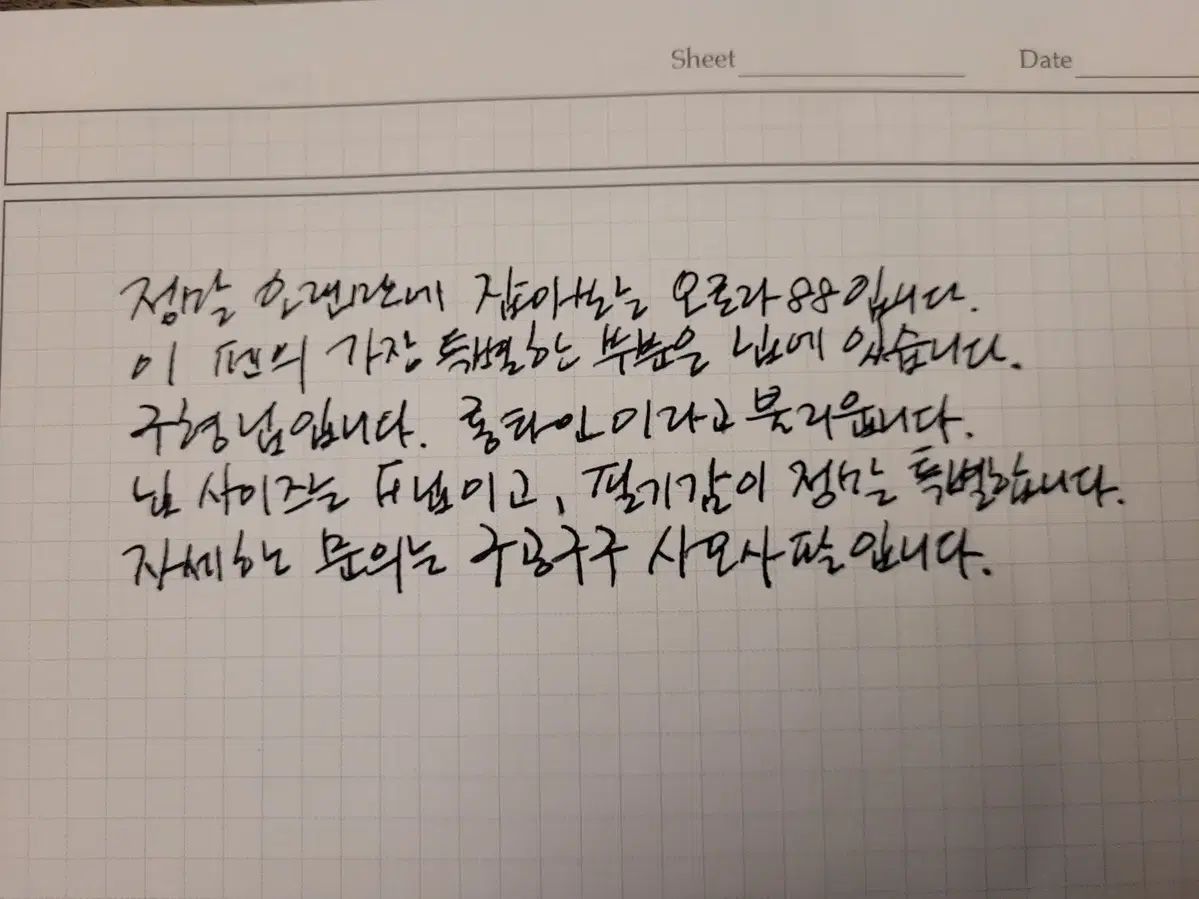 Sheet Date
정말 오랜만에 집아보는 오로라88입니다.
이 펜의 가장 특별한 부분은 닙에 있습니다.
구형 닙입니다. 롱타인이라고 불리웁니다.
닙 사이즈는 F닙이고, 필기감이 정말 특별합니다.
자세한 문의는 구공구구 사오사팔입니다.